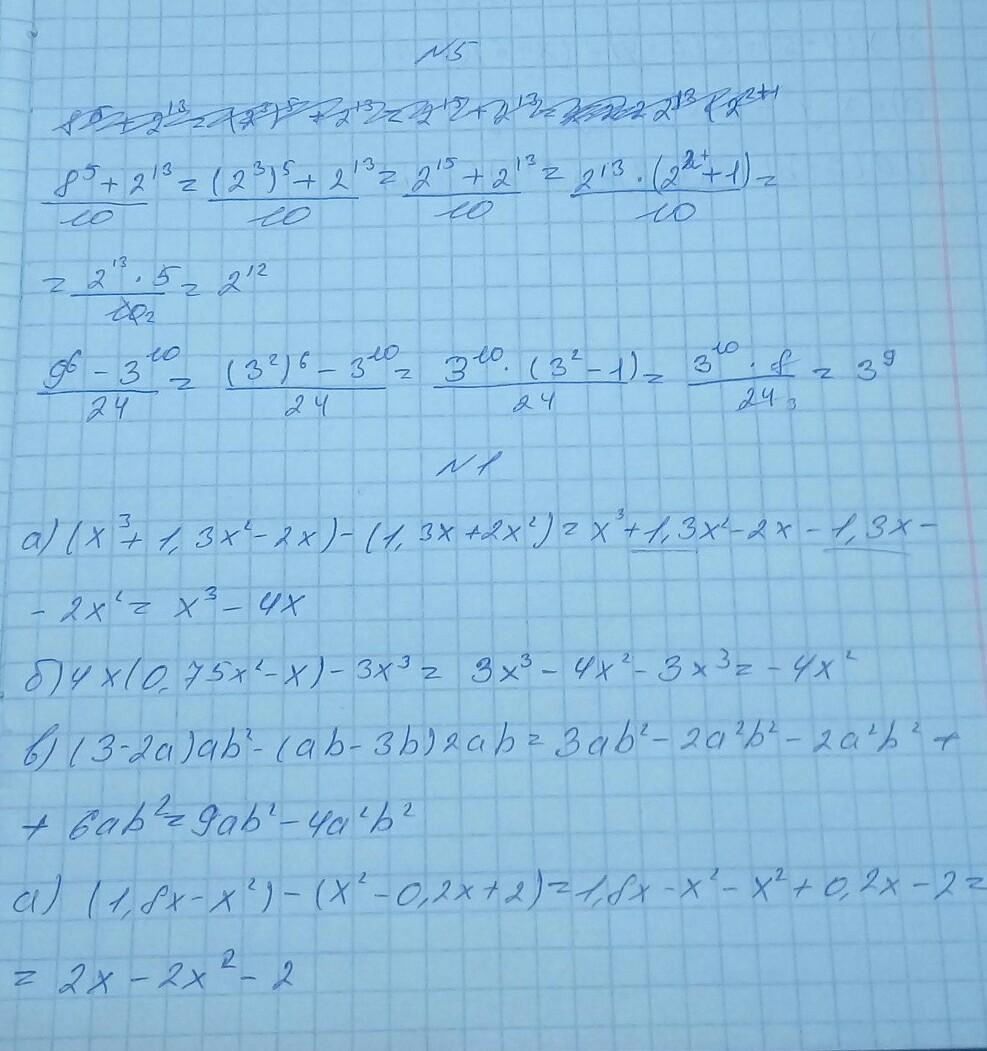 №5
8⁵ + 2¹³ = (2³)⁵ + 2¹³ = 2¹⁵ + 2¹³ = 2¹³ (2²+1
(8⁵ + 2¹³)/10 = ((2³)⁵ + 2¹³)/10 = (2¹⁵ + 2¹³)/10 = (2¹³ · (2² + 1))/10 =
= (2¹³ · 5)/10₂ = 2¹²
(9⁶ - 3¹⁰)/24 = ((3²)⁶ - 3¹⁰)/24 = (3¹⁰ · (3² - 1))/24 = (3¹⁰ · 8)/24₃ = 3⁹
№1
а) (x³ + 1,3x² - 2x) - (1,3x + 2x²) = x³ + 1,3x² - 2x - 1,3x -
- 2x² = x³ - 4x
б) 4x(0,75x² - x) - 3x³ = 3x³ - 4x² - 3x³ = - 4x²
в) (3-2a)ab² - (ab - 3b)2ab = 3ab² - 2a²b² - 2a²b² +
+ 6ab² = 9ab² - 4a²b²
а) (1,8x - x²) - (x² - 0,2x + 2) = 1,8x - x² - x² + 0,2x - 2 =
= 2x - 2x² - 2